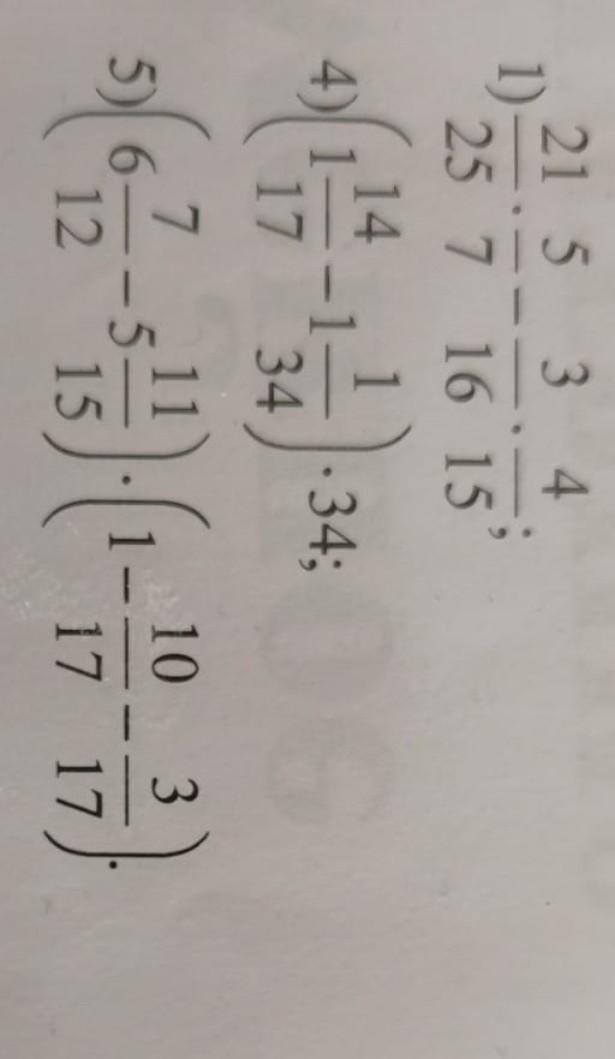 1) 21/25 · 5/7 − 3/16 · 4/15;
4) (1 14/17 − 1 1/34) · 34;
5) (6 7/12 − 5 11/15) · (1 − 10/17 − 3/17).